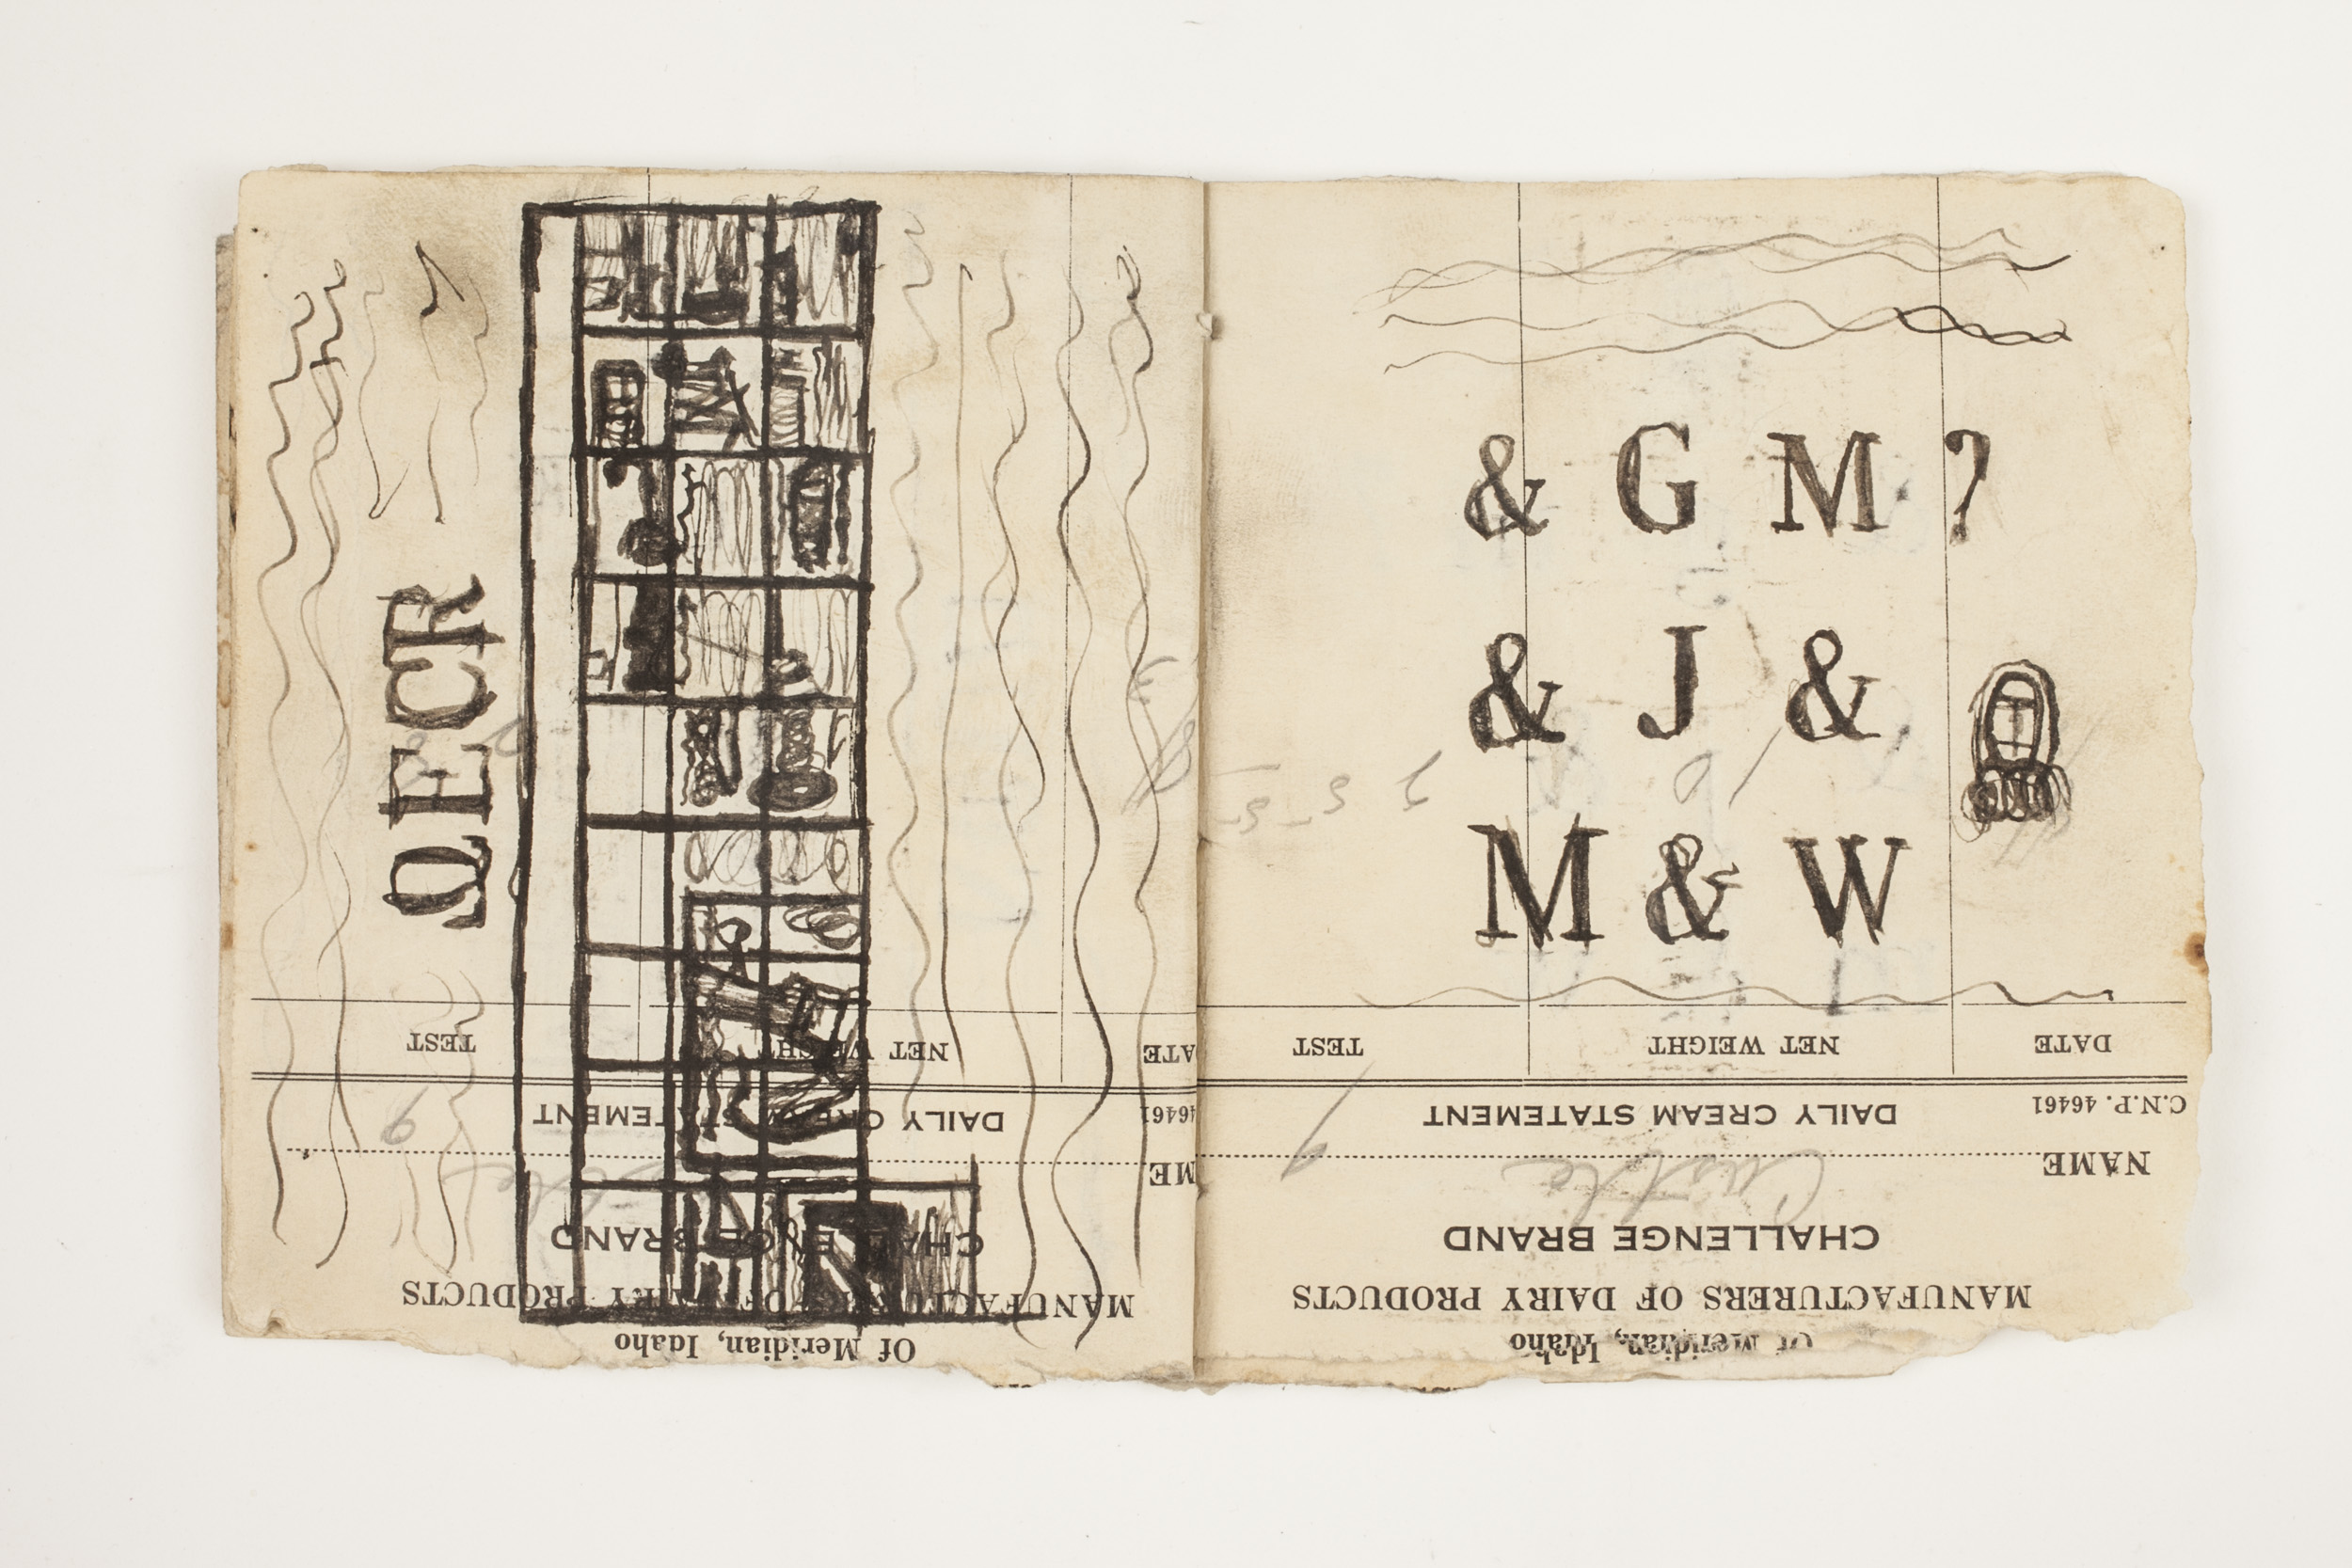 QECR
TEST NET WEIGHT DATE
DAILY CREAM STATEMENT 46461
CHALLENGE BRAND
MANUFACTURERS OF DAIRY PRODUCTS
Of Meridian, Idaho
& G M ?
& J &
M & W
TEST NET WEIGHT DATE
DAILY CREAM STATEMENT C.N.P. 46461
NAME Castle
CHALLENGE BRAND
MANUFACTURERS OF DAIRY PRODUCTS
Of Meridian, Idaho